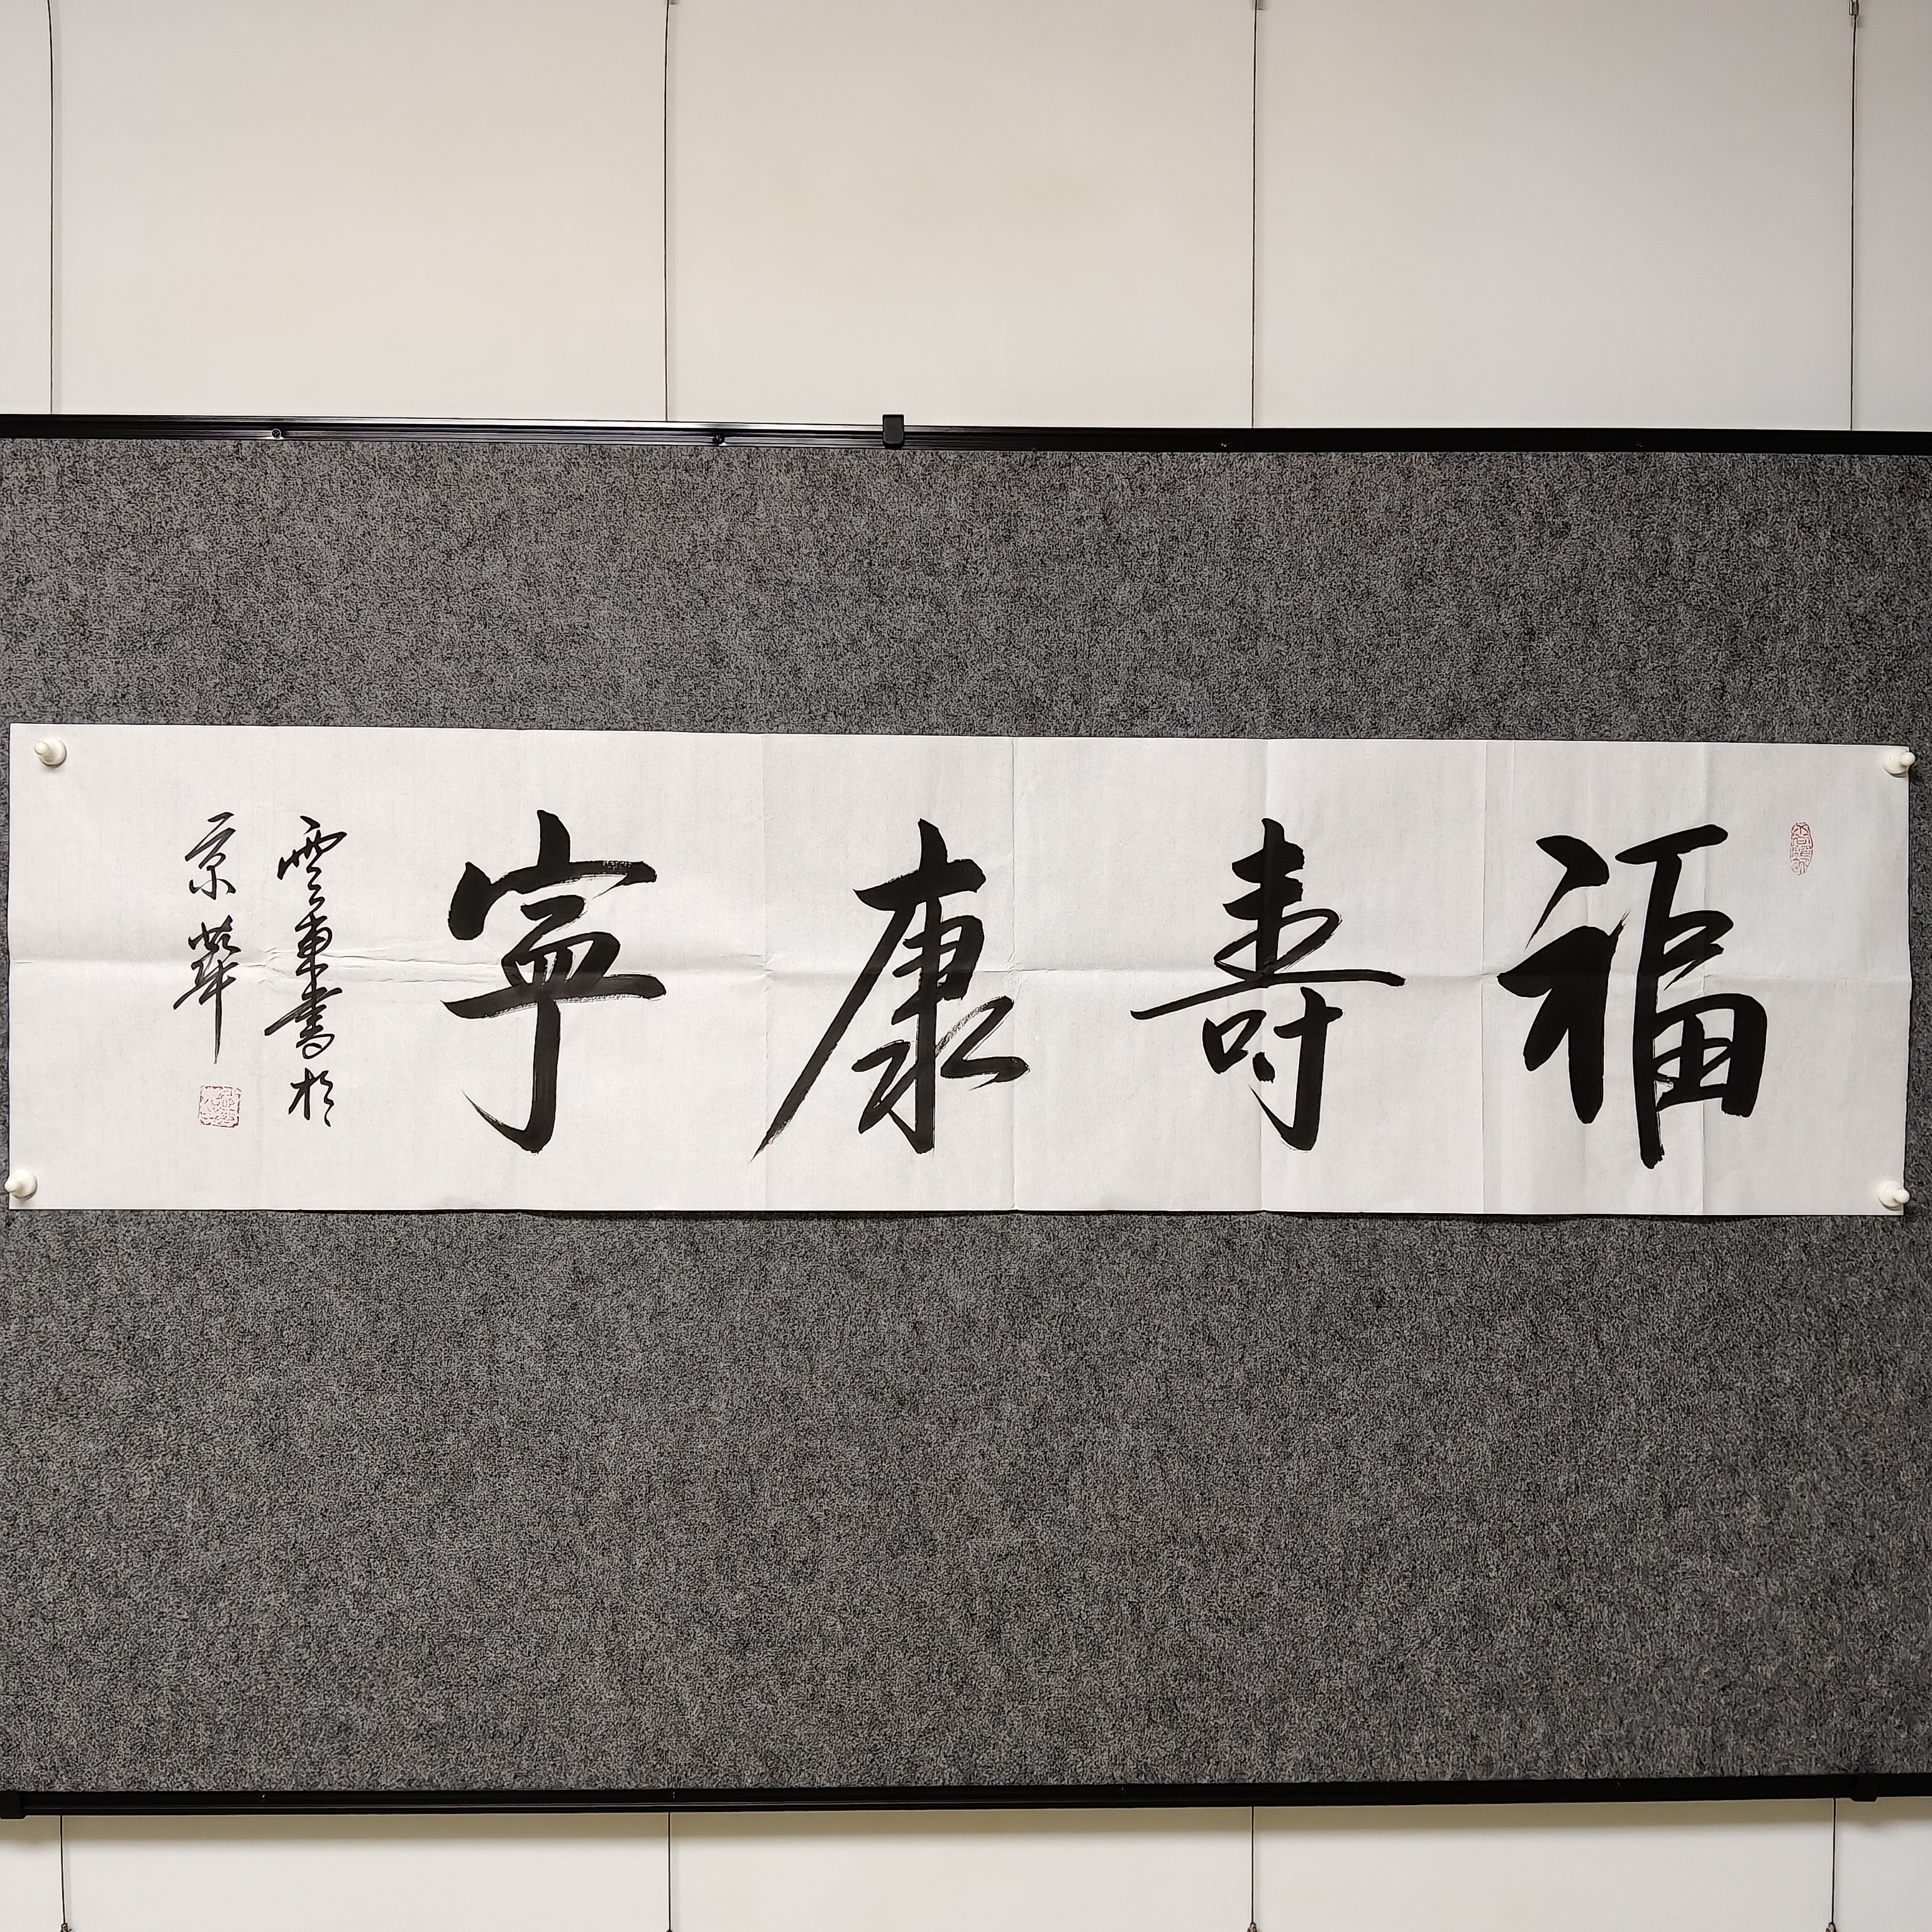 福壽康寧
雲東書於
京華